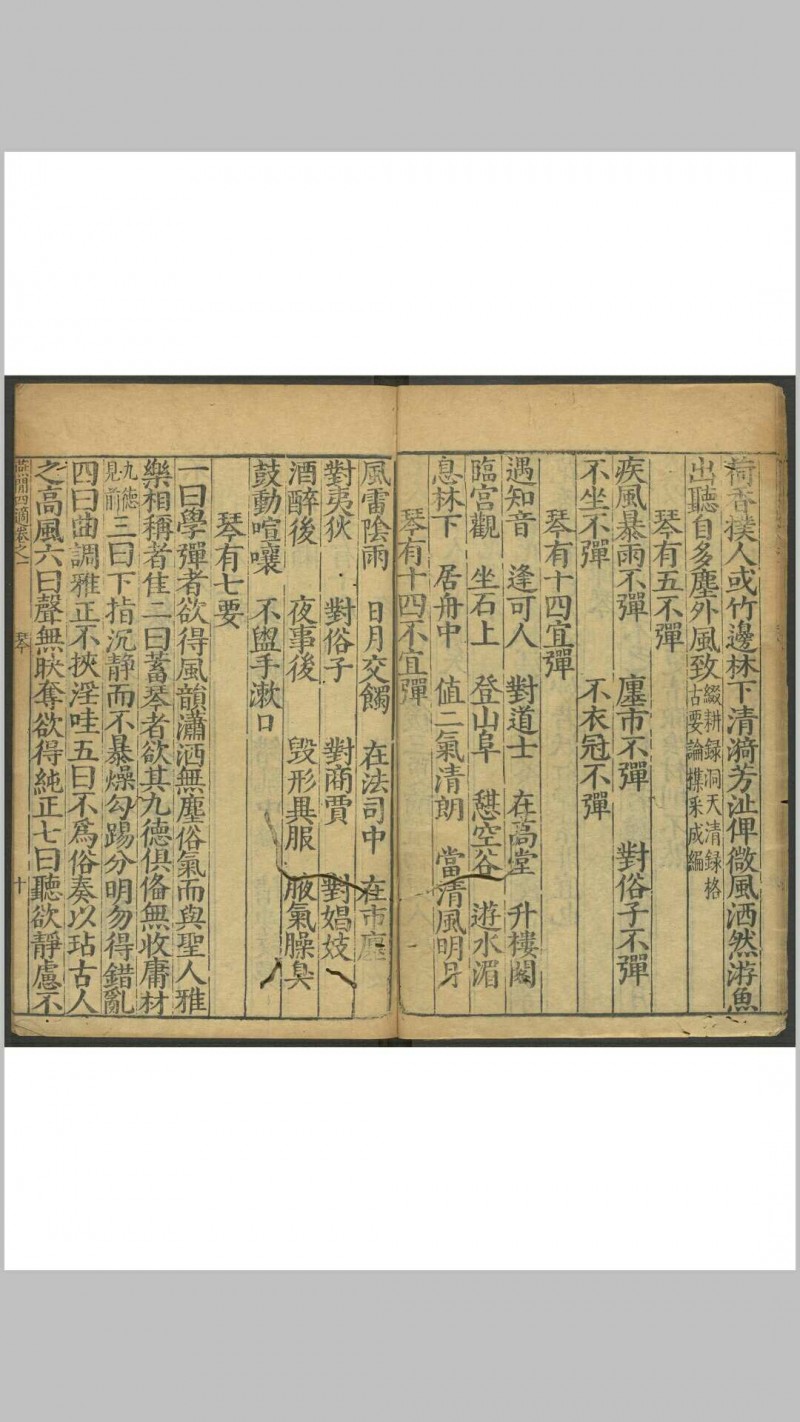 荷香撲人或竹邊林下清漪芳沚俾微風洒然游魚
出聽自多塵外風致綴耕録洞天清録格古要論揲采成編
琴有五不彈
疾風暴雨不彈 廛市不彈 對俗子不彈
不坐不彈 不衣冠不彈
琴有十四宜彈
遇知音 逢可人 對道士 在高堂 升樓閣
臨宮觀 坐石上 登山阜 憇空谷 遊水湄
息林下 居舟中 值二氣清朗 當清風明月
琴有十四不宜彈
風雷陰雨 日月交觸 在法司中 在市廛
對夷狄 對俗子 對商賈 對娼妓
酒醉後 夜事後 毀形異服 腋氣臊臭
鼓動喧嚷 不盥手漱口
琴有七要
一曰學彈者欲得風韻瀟洒無塵俗氣而與聖人雅
樂相稱者佳二曰蓄琴者欲其九德俱俻無收庸材
九德見前三曰下指沉静而不暴燥勾踢分明勿得錯亂
四曰曲調雅正不挾淫哇五曰不爲俗奏以玷古人
之高風六曰聲無映奪欲得純正七曰聽欲靜慮不
燕閒四適卷之一 琴 十